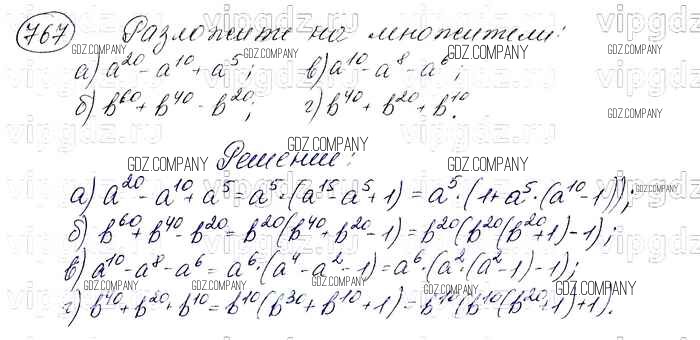 767 Разложите на множители:
а) a²⁰ - a¹⁰ + a⁵; в) a¹⁰ - a⁸ - a⁶;
б) b⁶⁰ + b⁴⁰ - b²⁰; г) b⁴⁰ + b²⁰ + b¹⁰.
Решение:
а) a²⁰ - a¹⁰ + a⁵ = a⁵·(a¹⁵ - a⁵ + 1) = a⁵·(1 + a⁵·(a¹⁰ - 1));
б) b⁶⁰ + b⁴⁰ - b²⁰ = b²⁰(b⁴⁰ + b²⁰ - 1) = b²⁰(b²⁰(b²⁰ + 1) - 1);
в) a¹⁰ - a⁸ - a⁶ = a⁶·(a⁴ - a² - 1) = a⁶·(a²·(a² - 1) - 1);
г) b⁴⁰ + b²⁰ + b¹⁰ = b¹⁰(b³⁰ + b¹⁰ + 1) = b¹⁰(b¹⁰(b²⁰ + 1) + 1).